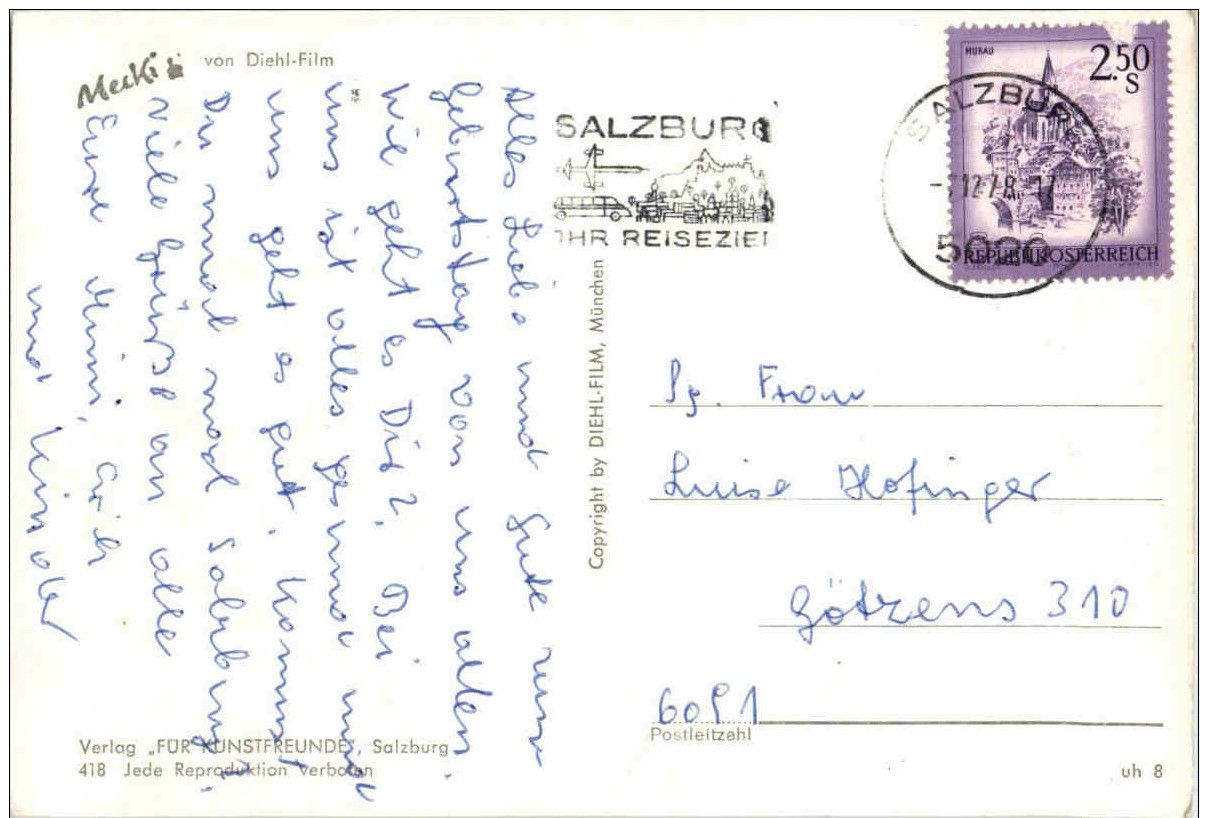 Mecki
von Diehl-Film
Alles Liebe und Gute zum
Geburtstag von uns allen.
Wie geht es Dir? Bei
uns ist alles gesund und
uns geht es gut. Kommst
Du mal nach Salzburg?
Viele Grüße an alle
Eure Mimi,
und Kinder
SALZBURG
IHR REISEZIEL
MURAU
2.50
S
REPUBLIK ÖSTERREICH
SALZBURG
12.78 - 17
Copyright by DIEHL-FILM, München
Frau
Luise Hofinger
Götzens 310
6091
Postleitzahl
Verlag „FÜR KUNSTFREUNDE", Salzburg
418 Jede Reproduktion verboten
uh 8